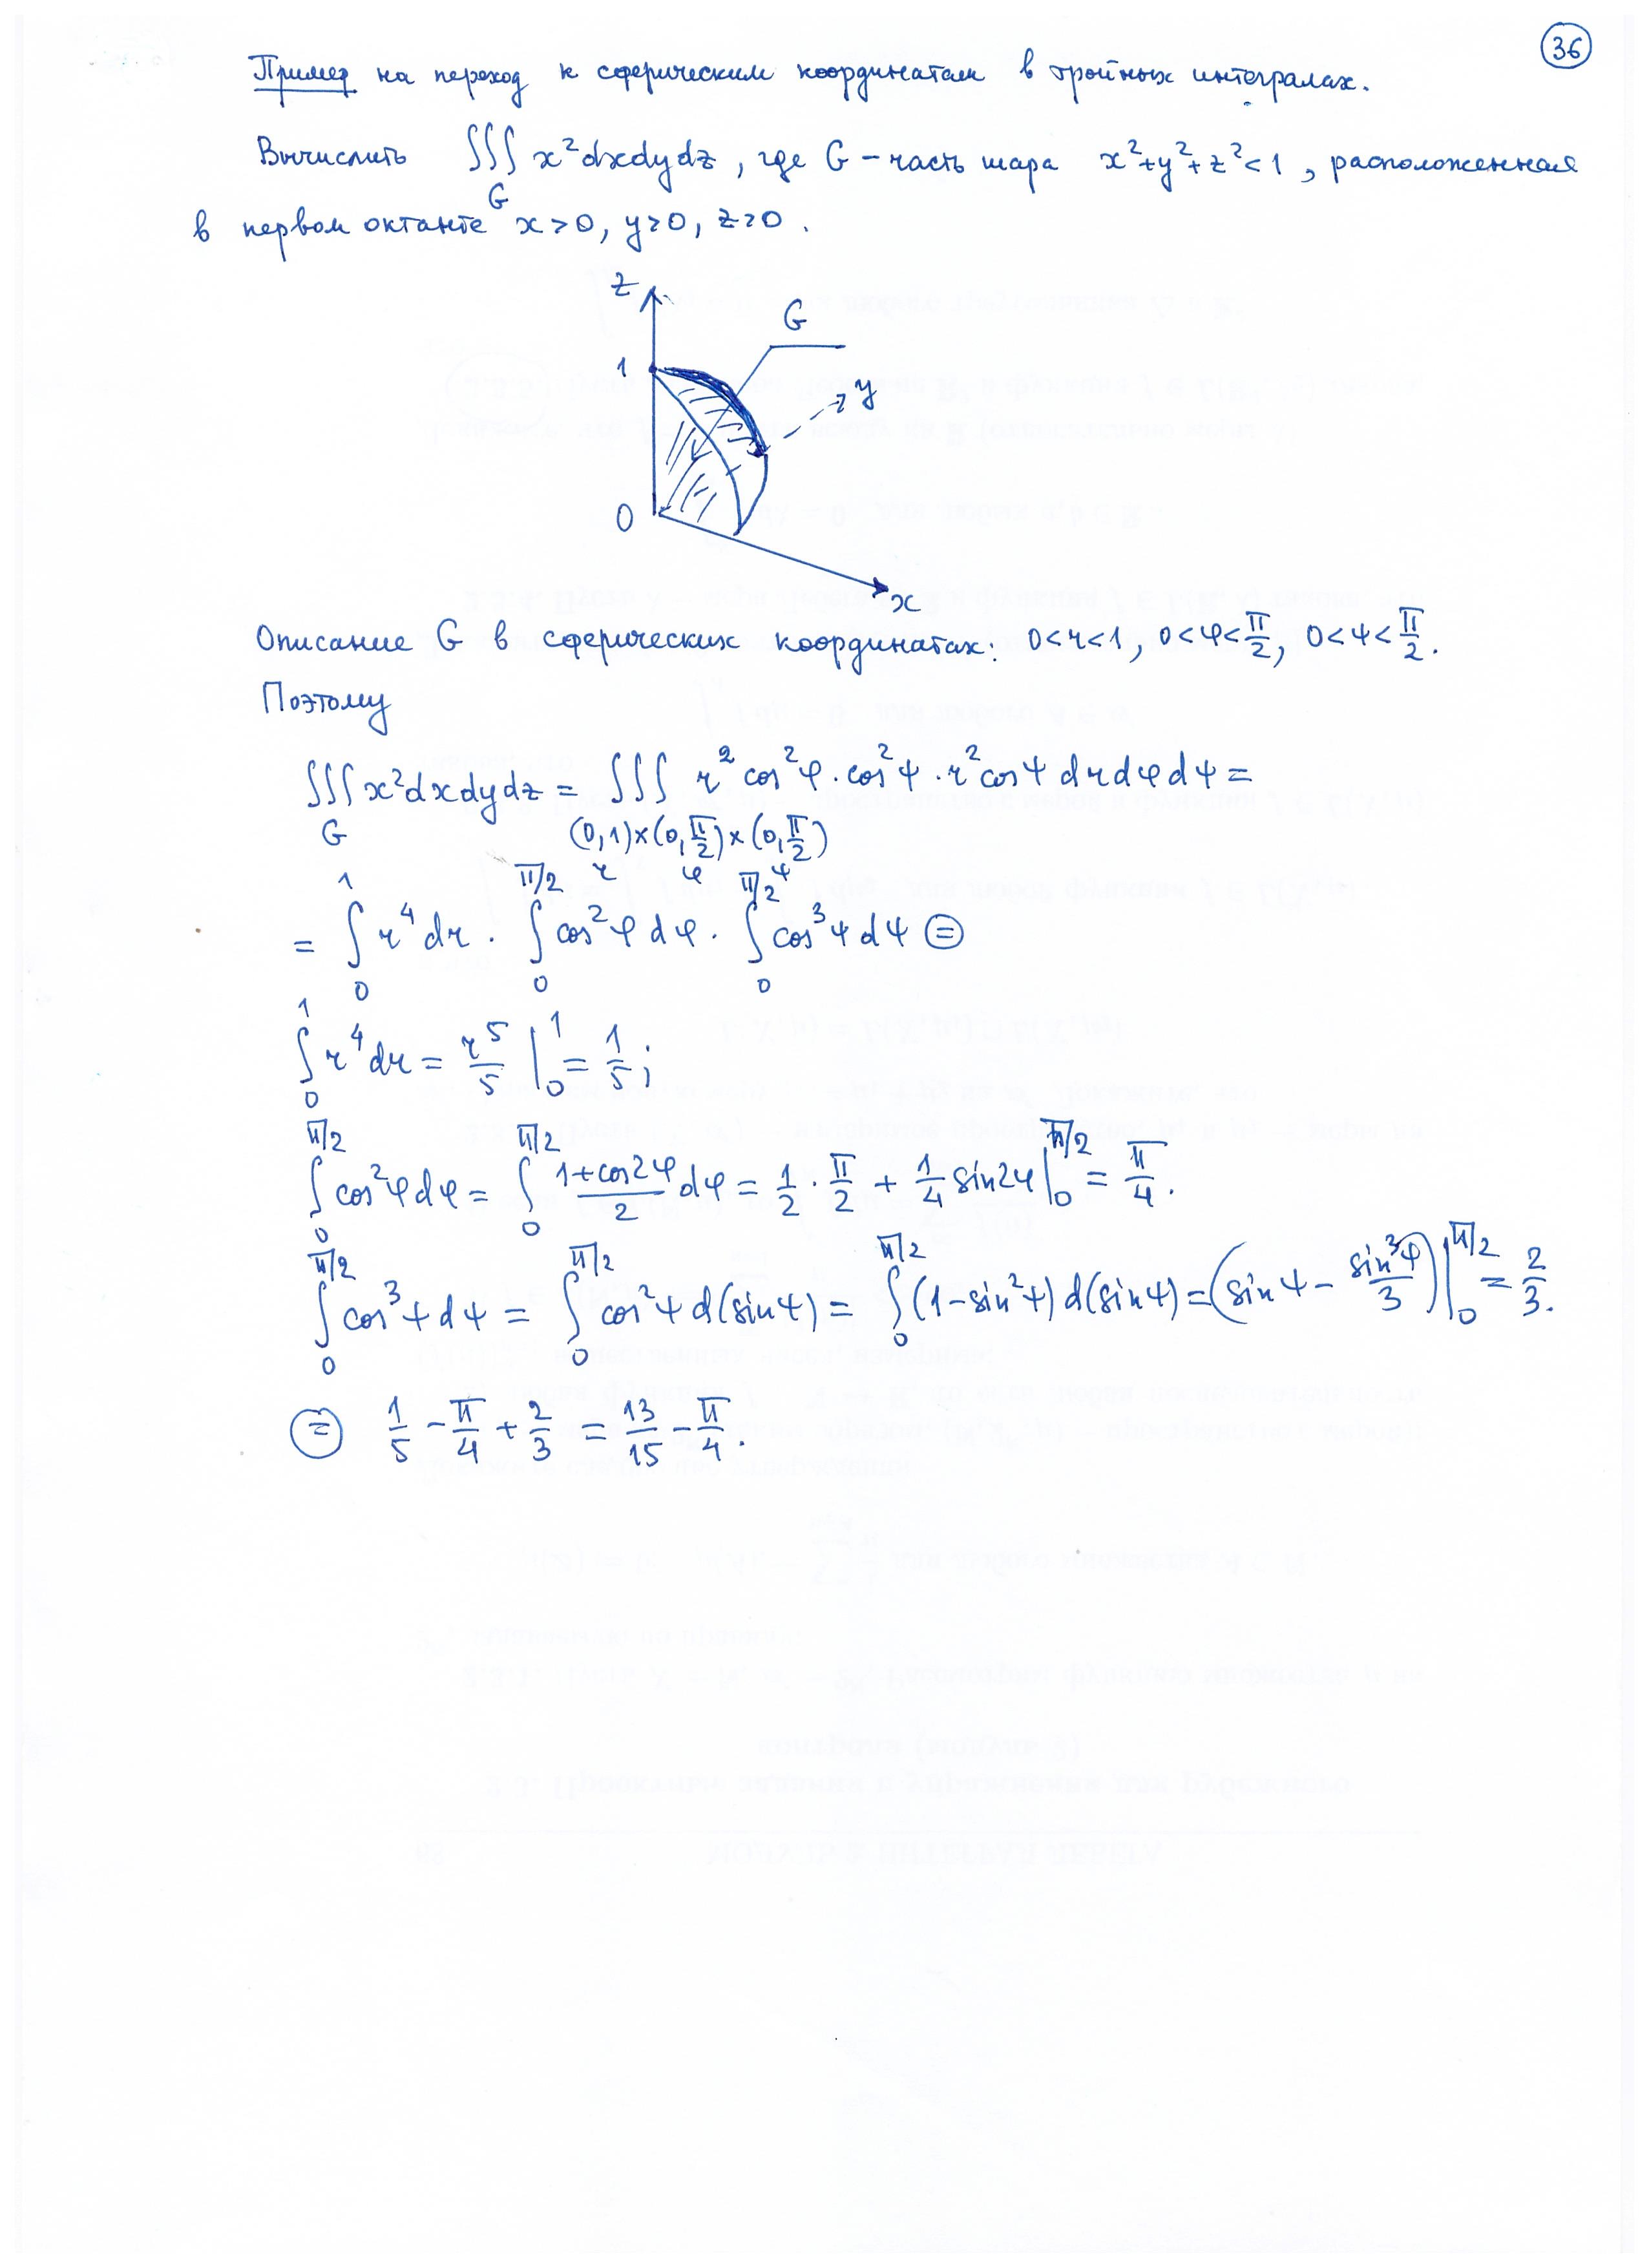 36
Пример на переход к сферическим координатам в тройных интегралах.
Вычислить ∭_G x²dxdydz, где G – часть шара x²+y²+z²<1, расположенная
в первом октанте x>0, y>0, z>0.
z
G
1
y
0
x
Описание G в сферических координатах: 0<r<1, 0<φ<π/2, 0<ψ<π/2.
Поэтому
∭_G x²dxdydz = ∭_{(0,1)×(0,π/2)×(0,π/2)} r² cos²φ·cos²ψ·r²cosψ dr dφ dψ =
r φ ψ
= ∫_0^1 r⁴dr · ∫_0^{π/2} cos²φ dφ · ∫_0^{π/2} cos³ψ dψ ⊜
∫_0^1 r⁴dr = r⁵/5 |_0^1 = 1/5;
∫_0^{π/2} cos²φ dφ = ∫_0^{π/2} (1+cos2φ)/2 dφ = 1/2 · π/2 + 1/4 sin2φ |_0^{π/2} = π/4.
∫_0^{π/2} cos³ψ dψ = ∫_0^{π/2} cos²ψ d(sinψ) = ∫_0^{π/2} (1-sin²ψ) d(sinψ) = (sinψ - sin³ψ/3) |_0^{π/2} = 2/3.
⊜ 1/5 - π/4 + 2/3 = 13/15 - π/4.